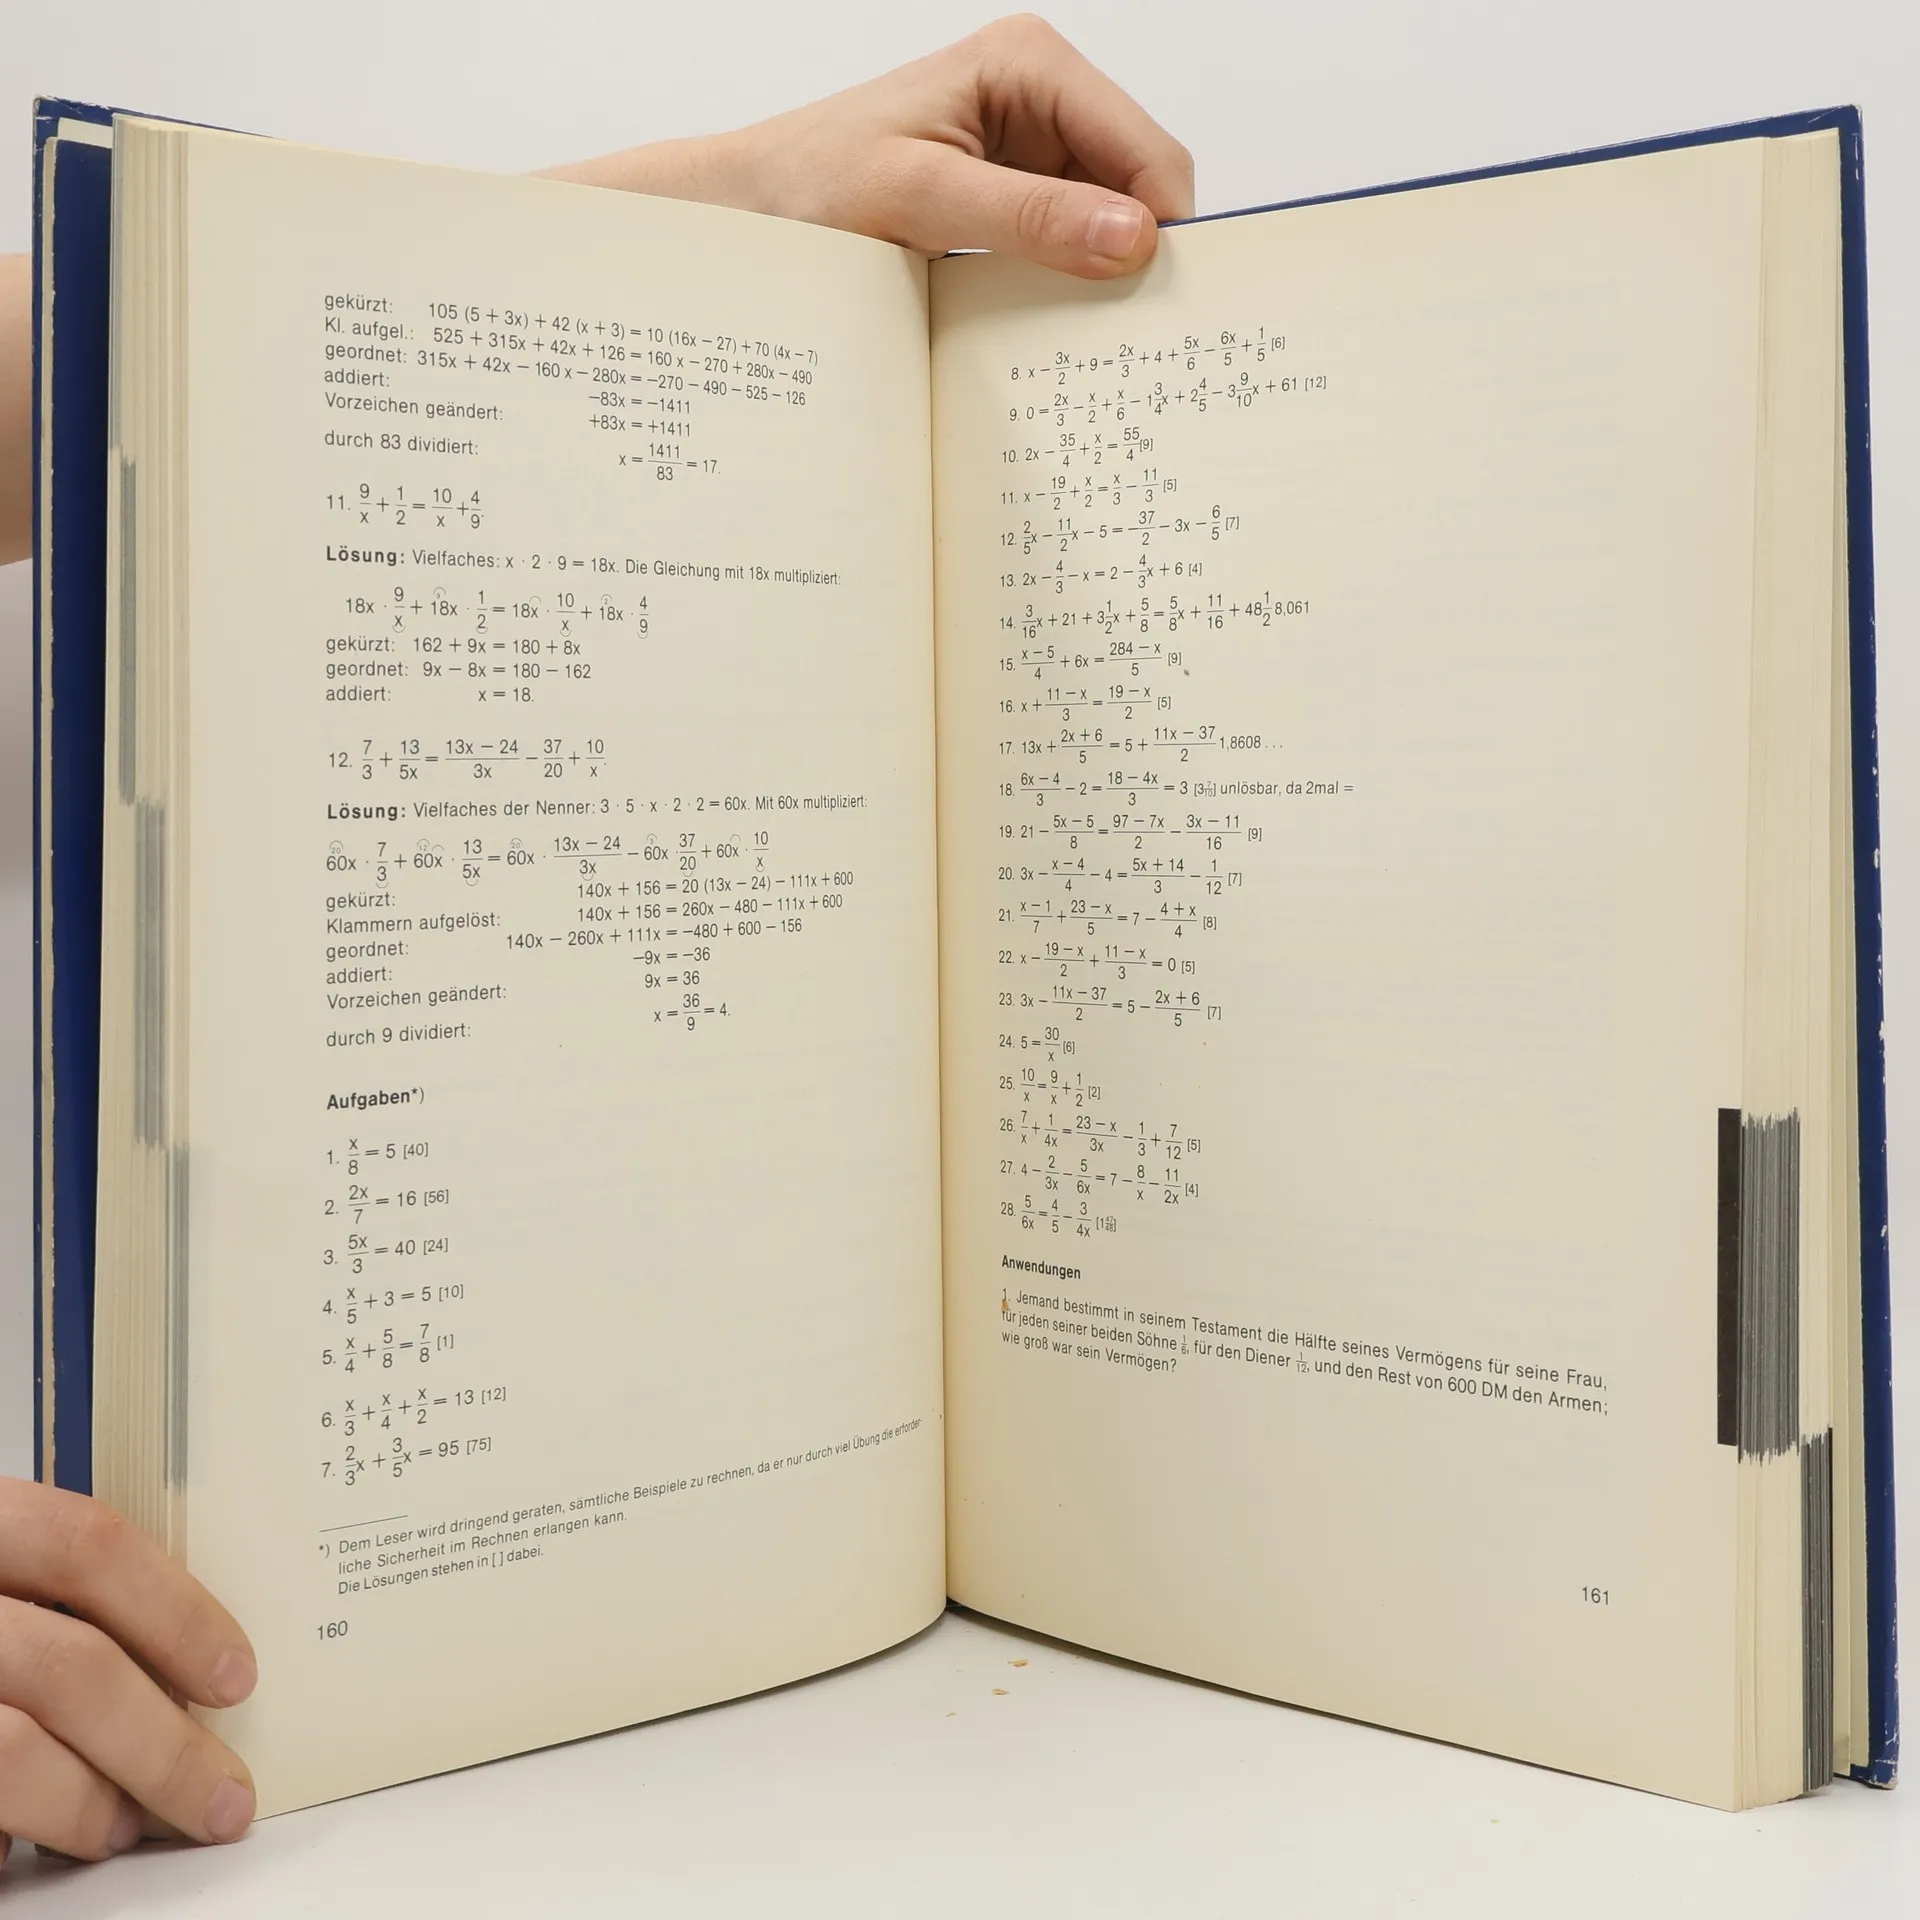 gekürzt: 105 (5 + 3x) + 42 (x + 3) = 10 (16x − 27) + 70 (4x − 7)
Kl. aufgel.: 525 + 315x + 42x + 126 = 160 x − 270 + 280x − 490
geordnet: 315x + 42x − 160 x − 280x = −270 − 490 − 525 − 126
addiert: −83x = −1411
Vorzeichen geändert: +83x = +1411
durch 83 dividiert: x = 1411/83 = 17.
11. 9/x + 1/2 = 10/x + 4/9.
Lösung: Vielfaches: x · 2 · 9 = 18x. Die Gleichung mit 18x multipliziert:
18x · 9/x + 18x · 1/2 = 18x · 10/x + 18x · 4/9
gekürzt: 162 + 9x = 180 + 8x
geordnet: 9x − 8x = 180 − 162
addiert: x = 18.
12. 7/3 + 13/5x = 13x − 24/3x − 37/20 + 10/x.
Lösung: Vielfaches der Nenner: 3 · 5 · x · 2 · 2 = 60x. Mit 60x multipliziert:
60x · 7/3 + 60x · 13/5x = 60x · 13x − 24/3x − 60x · 37/20 + 60x · 10/x
gekürzt: 140x + 156 = 20 (13x − 24) − 111x + 600
Klammern aufgelöst: 140x + 156 = 260x − 480 − 111x + 600
geordnet: 140x − 260x + 111x = −480 + 600 − 156
addiert: −9x = −36
Vorzeichen geändert: 9x = 36
durch 9 dividiert: x = 36/9 = 4.
Aufgaben*)
1. x/8 = 5 [40]
2. 2x/7 = 16 [56]
3. 5x/3 = 40 [24]
4. x/5 + 3 = 5 [10]
5. x/4 + 5/8 = 7/8 [1]
6. x/3 + x/4 + x/2 = 13 [12]
7. 2/3x + 3/5x = 95 [75]
*) Dem Leser wird dringend geraten, sämtliche Beispiele zu rechnen, da er nur durch viel Übung die erforder-
liche Sicherheit im Rechnen erlangen kann.
Die Lösungen stehen in [ ] dabei.
160
8. x − 3x/2 + 9 = 2x/3 + 4 + 5x/6 − 6x/5 + 1/5 [6]
9. 0 = 2x/3 − x/2 + x/6 − 1 3/4x + 2 4/5 − 3 9/10x + 61 [12]
10. 2x − 35/4 + x/2 = 55/4 [9]
11. x − 19/2 + x/2 = x/3 − 11/3 [5]
12. 2/5x − 11/2x − 5 = −37/2 − 3x − 6/5 [7]
13. 2x − 4/3 − x = 2 − 4/3x + 6 [4]
14. 3/16x + 21 + 3 1/2x + 5/8 = 5/8x + 11/16 + 48 1/2 8,061
15. x − 5/4 + 6x = 284 − x/5 [9]
16. x + 11 − x/3 = 19 − x/2 [5]
17. 13x + 2x + 6/5 = 5 + 11x − 37/2 1,8608 ...
18. 6x − 4/3 − 2 = 18 − 4x/3 = 3 [3 7/10] unlösbar, da 2mal =
19. 21 − 5x − 5/8 = 97 − 7x/2 − 3x − 11/16 [9]
20. 3x − x − 4/4 − 4 = 5x + 14/3 − 1/12 [7]
21. x − 1/7 + 23 − x/5 = 7 − 4 + x/4 [8]
22. x − 19 − x/2 + 11 − x/3 = 0 [5]
23. 3x − 11x − 37/2 = 5 − 2x + 6/5 [7]
24. 5 = 30/x [6]
25. 10/x = 9/x + 1/2 [2]
26. 7/x + 1/4x = 23 − x/3x − 1/3 + 7/12 [5]
27. 4 − 2/3x − 5/6x = 7 − 8/x − 11/2x [4]
28. 5/6x = 4/5 − 3/4x [1 47/48]
Anwendungen
1. Jemand bestimmt in seinem Testament die Hälfte seines Vermögens für seine Frau,
für jeden seiner beiden Söhne 1/6, für den Diener 1/12, und den Rest von 600 DM den Armen;
wie groß war sein Vermögen?
161